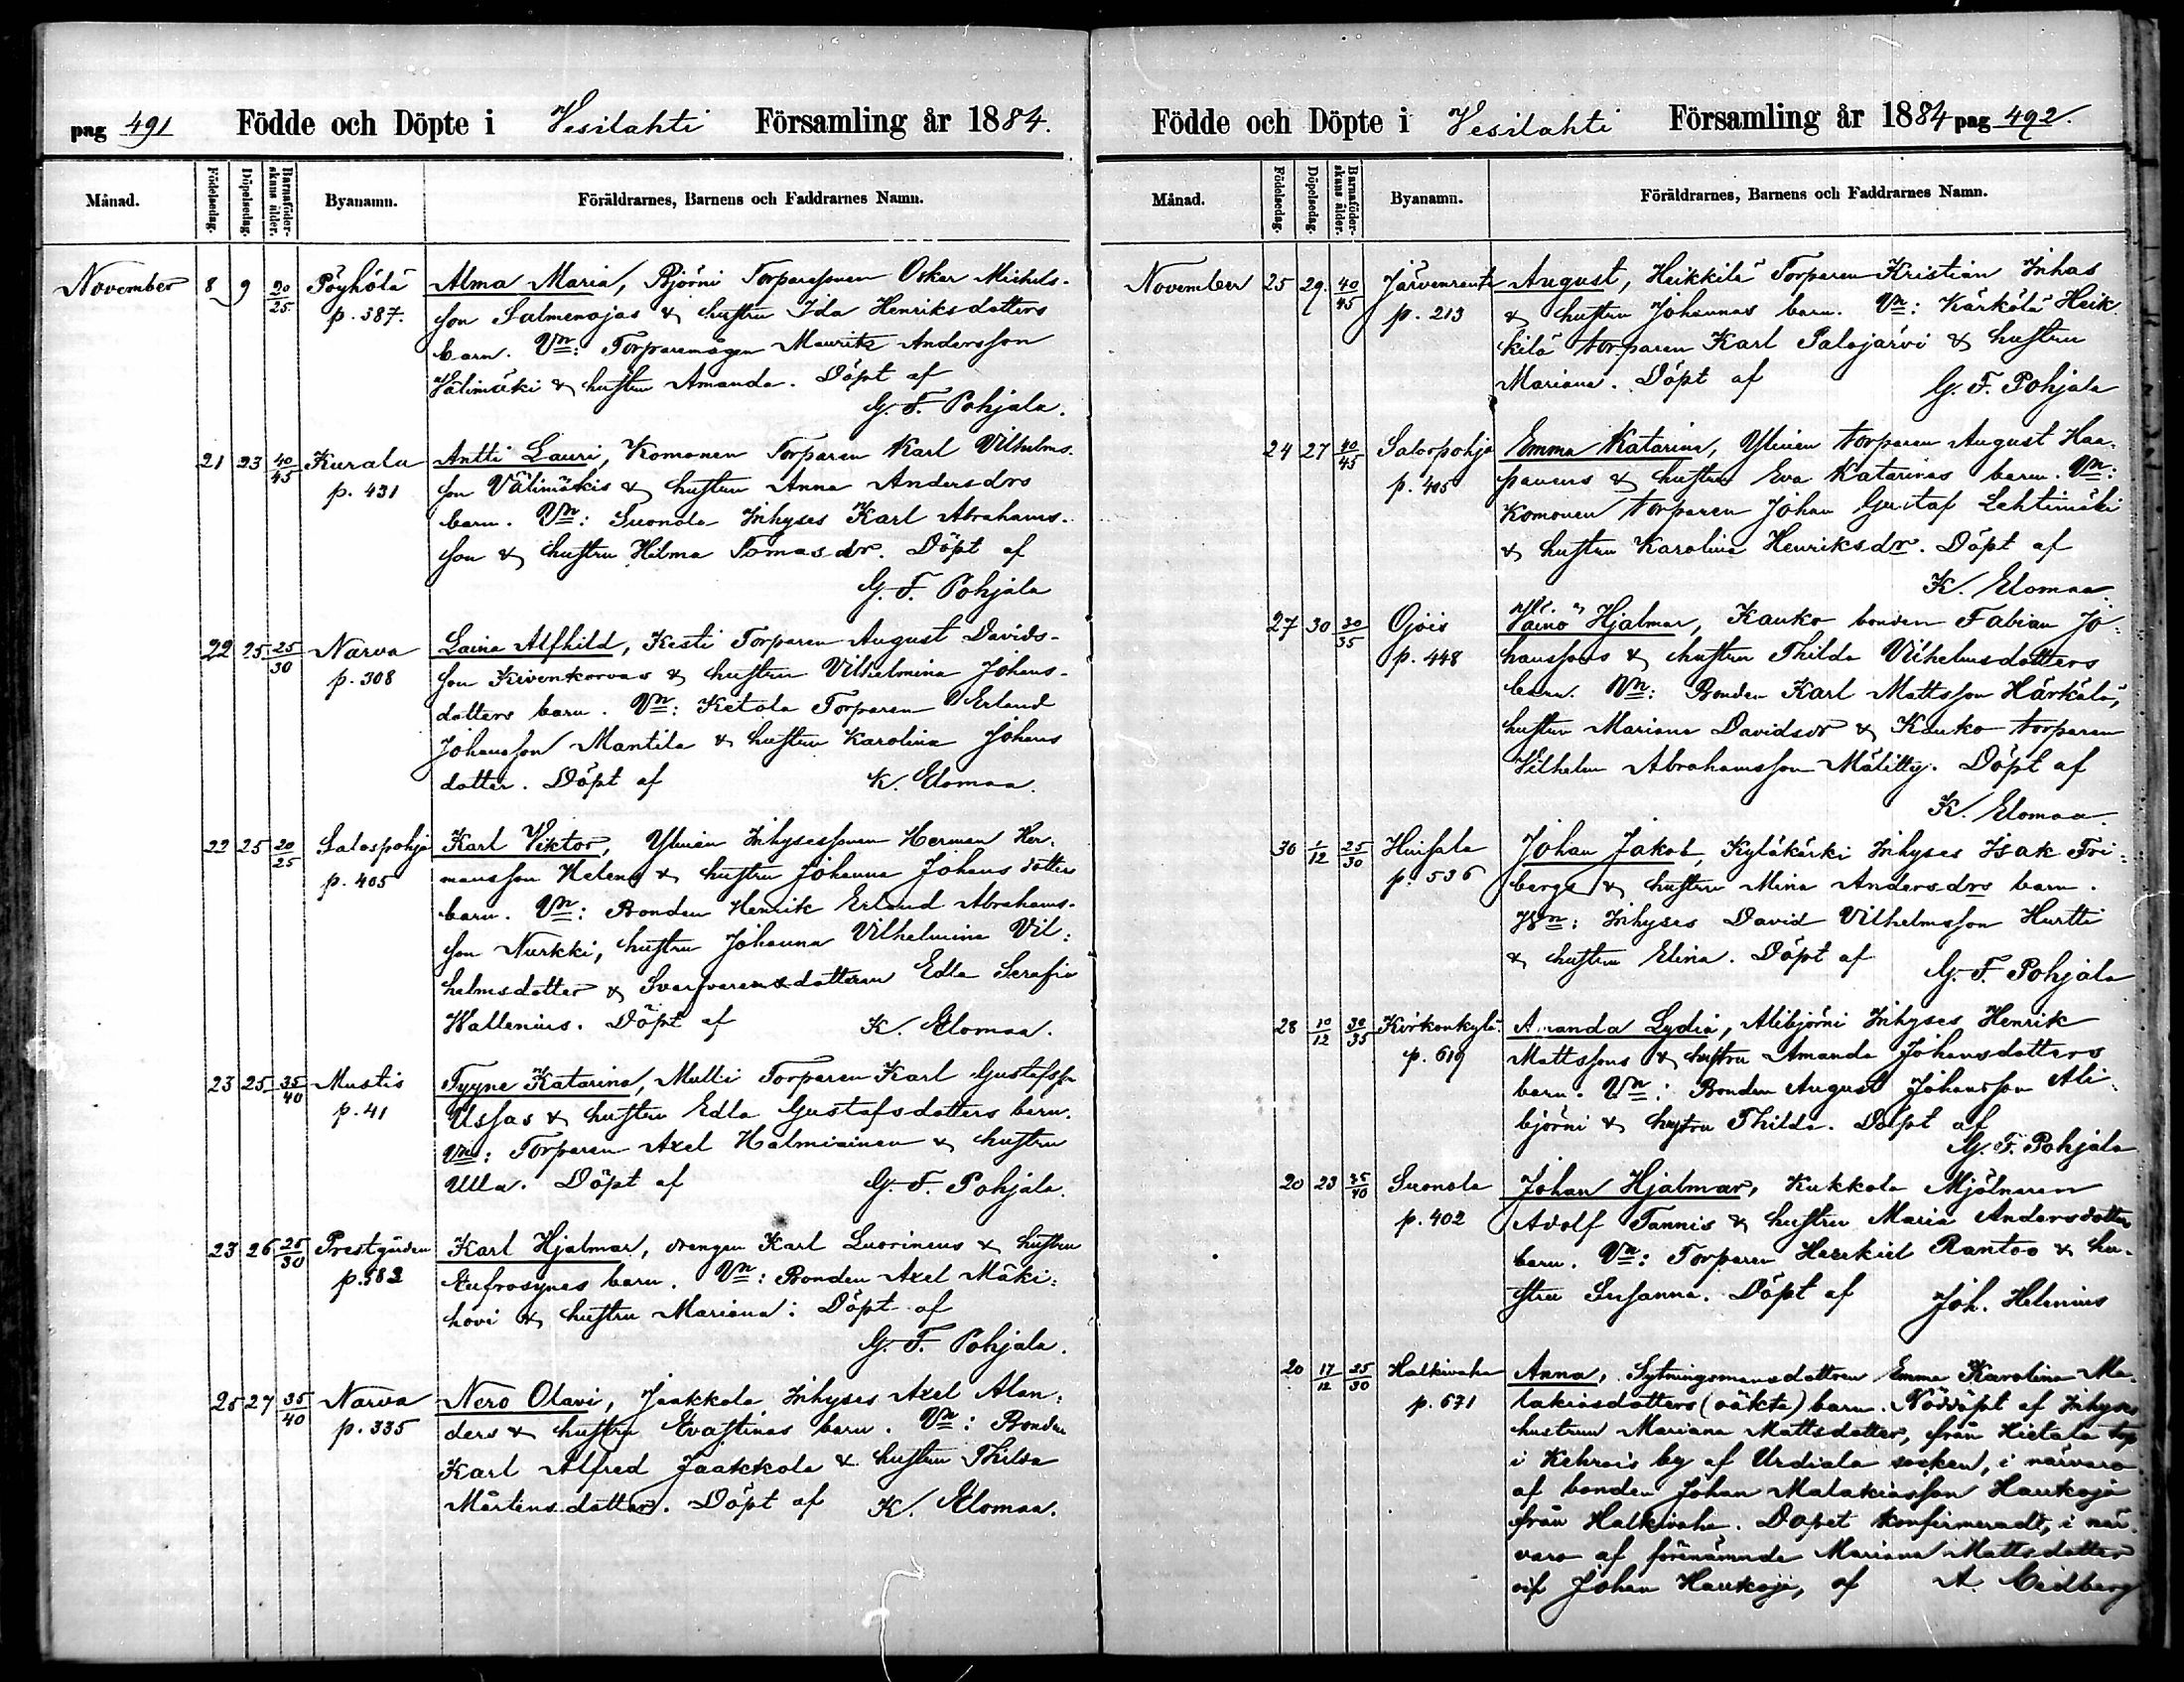 pag 491 Födde och Döpte i Vesilahti Församling år 1884.
Månad. Födelsedag. Döpelsedag. Barnaföderskans ålder. Byanamn. Föräldrarnes, Barnens och Faddrarnes Namn.
November 8 9 20/25 Pöyhölä Alma Maria, Björni Torparesonen Oskar Michels-
p. 387. son Salmenojas & hustru Ida Henriksdotters
barn. Vn: Torparemågen Mauritz Andersson
Välimäki & hustru Amanda. Döpt af
G. F. Pohjala.
21 23 40/45 Kurala Antti Lauri, Komonen Torparen Karl Vilhelms-
p. 431 son Välimäkis & hustru Anna Andersdrs
barn. Vn: Suonola Inhyses Karl Abrahams-
son & hustru Hilma Tomasdr. Döpt af
G. F. Pohjala
22 25 25/30 Narva Laina Alfhild, Kesti Torparen August Davids-
p. 308 son Kivenkorvas & hustru Vilhelmina Johans-
dotters barn. Vn: Ketola Torparen Erland
Johansson Mantila & hustru Karolina Johans
dotter. Döpt af K. Elomaa.
22 25 20/25 Salospohja Karl Viktor, Ylinen Inhysessonen Herman Her-
p. 405 mansson Helens & hustru Johanna Johansdotters
barn. Vn: Bonden Henrik Erland Abrahams-
son Nurkki, hustru Johanna Vilhelmina Vil:
helmsdotter & Svarfvaredottren Edla Serafia
Wallenius. Döpt af K. Elomaa.
23 25 35/40 Mustis Tyyne Katarina, Multi Torparen Karl Gustafss
p. 41 Ussas & hustru Edla Gustafsdotters barn.
Vn: Torparen Axel Halmiainen & hustru
Ulla. Döpt af G. F. Pohjala.
23 26 25/30 Prestgården Karl Hjalmar, drengen Karl Luorinens & hustru
p. 582 Eufrosynes barn. Vn: Bonden Axel Mäki:
hovi & hustru Mariana: Döpt af
G. F. Pohjala.
25 27 35/40 Narva Nero Olavi, Jaakkola Inhyses Axel Alan:
p. 335 ders & hustru Evastinas barn. Vn: Bonden
Karl Alfred Jaakkola & hustru Thilda
Mårtensdotter. Döpt af K. Elomaa.
Födde och Döpte i Vesilahti Församling år 1884 pag 492.
Månad. Födelsedag. Döpelsedag. Barnaföderskans ålder. Byanamn. Föräldrarnes, Barnens och Faddrarnes Namn.
November 25 29. 40/45 Järvenranta August, Heikkilä Torparen Kristian Inhas
p. 213 & hustru Johannas barn. Vn: Kärkölä Heik
kilä torparen Karl Palojärvi & hustru
Mariana. Döpt af G. F. Pohjala
24 27 40/45 Salospohja Emma Katarina, Ylinen torparen August Haa-
p. 405 panens & hustru Eva Katarinas barn. Vn:
Komonen torparen Johan Gustaf Lehtimäki
& hustru Karolina Henriksdr. Döpt af
K. Elomaa.
27 30 30/35 Ojois Väinö Hjalmar, Kauko bonden Fabian Jo-
p. 448 hanssons & hustru Thilda Vilhelmsdotters
barn. Vn: Bonden Karl Mattsson Härkälä,
hustru Mariana Davidsdr & Kauko torparen
Vilhelm Abrahamsson Mälitty. Döpt af
K. Elomaa
30 1/12 25/30 Hinsala Johan Jakob, Kyläkärki Inhyses Isak Fri:
p. 536 bergs & hustru Mina Andersdrs barn.
Vn: Inhyses David Vilhelmsson Hurtti
& hustru Elina. Döpt af G. F. Pohjala
28 10/12 30/35 Kirkonkylä Amanda Lydia, Alibjörni Inhyses Henrik
p. 619 Mattssons & hustru Amanda Johansdotters
barn. Vn: Bonden August Johansson Ali-
björni & hustru Thilda. Döpt af
G. F. Pohjala
20 23 35/40 Suonola Johan Hjalmar, Kukkola Mjölnaren
p. 402 Adolf Tannis & hustru Maria Andersdotters
barn. Vn: Torparen Heskiel Rantoo & hu-
stru Susanna. Döpt af Joh. Helenius
20 17/12 25/30 Halkivaha Anna, Sytningsmansdottren Emma Karolina Ma-
p. 671 lakiasdotters (oäkta) barn. Nöddöpt af Inhyses
hustrun Mariana Mattsdotter, från Hietala torp
i Kehrois by af Urdiala socken, i närvaro
af bonden Johan Malakiasson Haukoja
från Halkivaha. Dopet konfirmeradt, i när-
varo af förenämnde Mariana Mattsdotter
och Johan Haukoja, af A. Cedberg